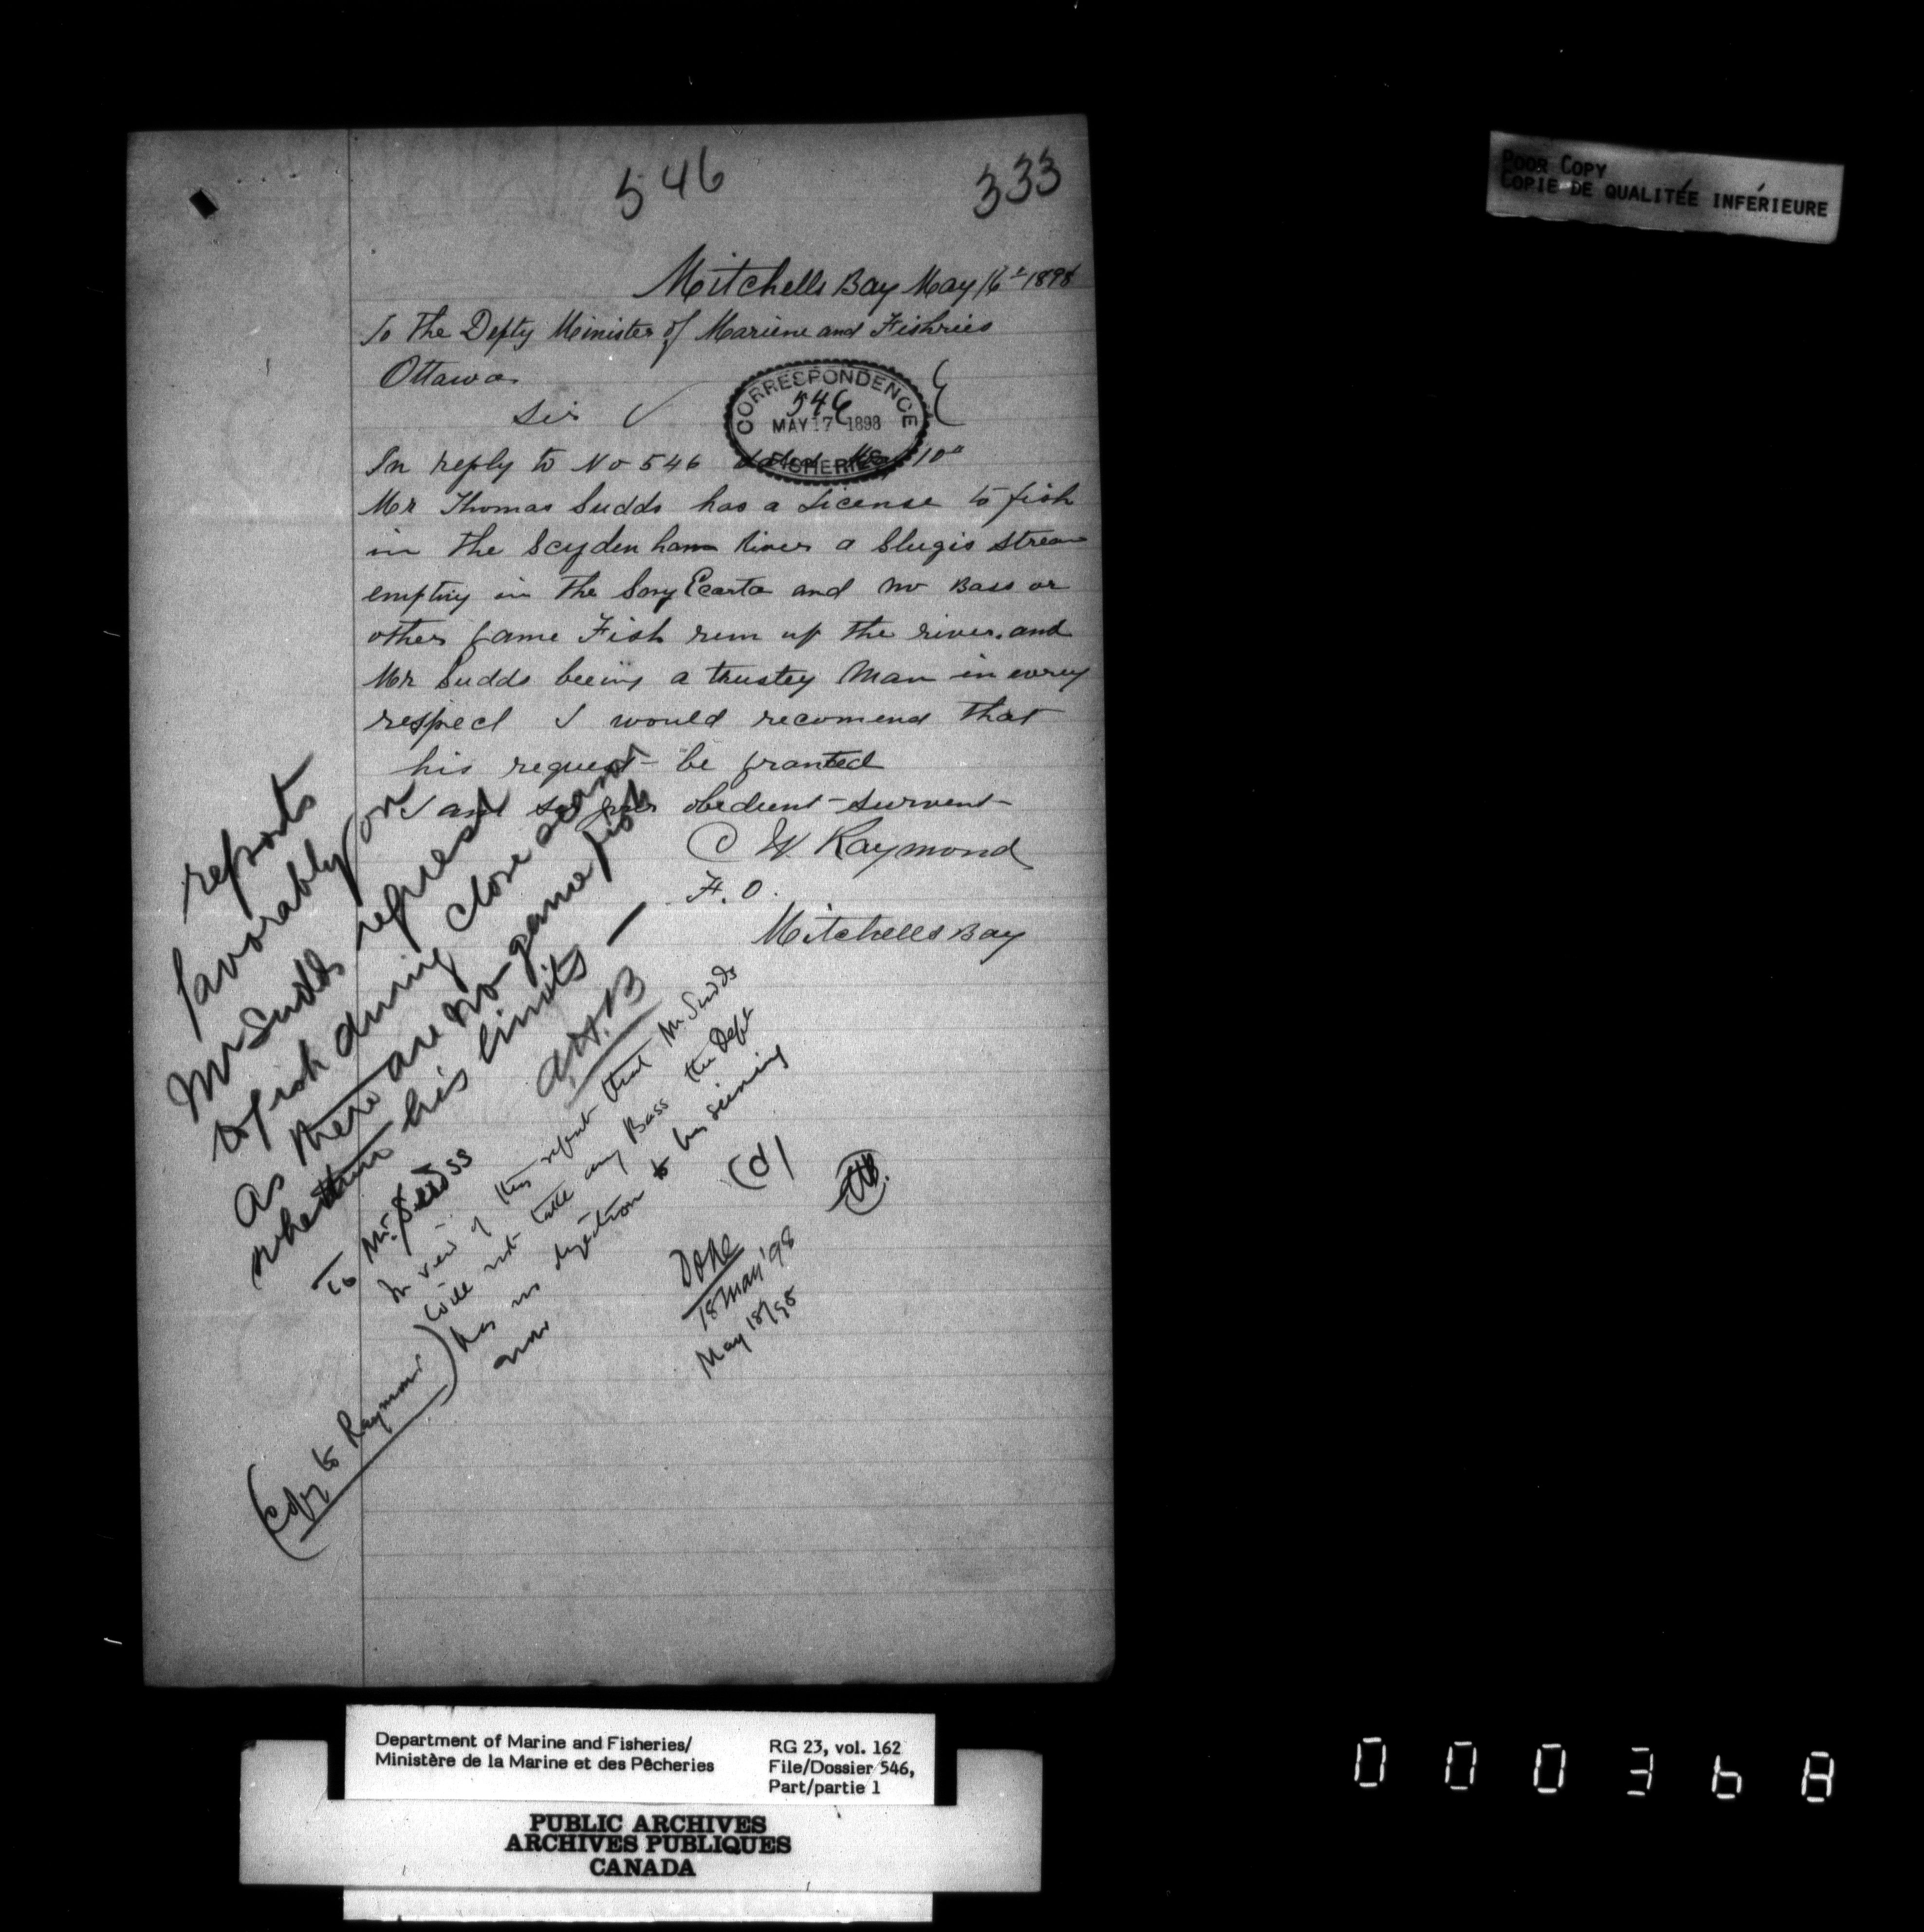 546
333
POOR COPY
COPIE DE QUALITÉE INFÉRIEURE
Mitchells Bay May 16" 1898
To The Depty Minister of Mariene and Fishries
Ottawa
Sir
CORRESPONDENCE
546
MAY 17 1898
FISHERIES
In reply to No 546 dated May 10"
Mr Thomas Sudds has a License to fish
in the Scydenham River a Slugis stream
emptiy in the Sny Ecarta and no Bass or
other Game Fish run up the river. and
Mr Sudds beeing a trustey Man in every
respect I would recomend that
his request be granted
I am Sir your obedient survent
C W Raymond
F. O.
Mitchells Bay
reports
favorably on
Mr Sudds request
to fish during close season
as there are no game fish
within his limits —
A.H.B
To Mr. Sudds
In view of this report that Mr. Sudds
will not take any Bass the Dept
has no objection to his seining
now
(d)
(Copy to Raymond)
Done
18 May '98
May 18/98
Department of Marine and Fisheries/
Ministère de la Marine et des Pêcheries
RG 23, vol. 162
File/Dossier 546,
Part/partie 1
PUBLIC ARCHIVES
ARCHIVES PUBLIQUES
CANADA
000368